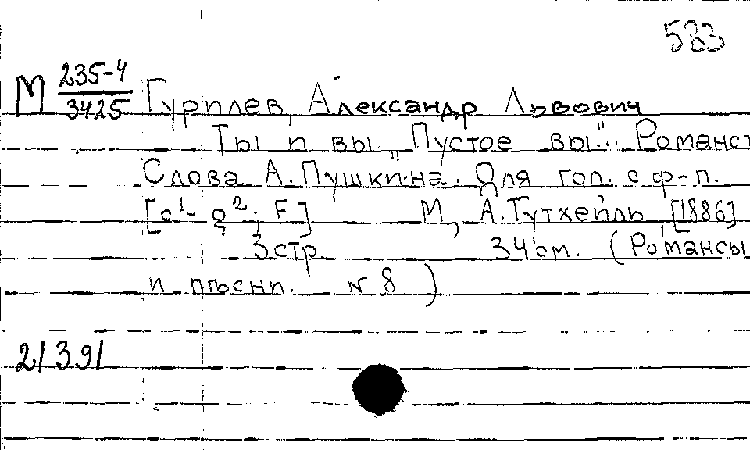 583
М 235-4/3425 Гурилев, Александр Львович
Ты и вы. „Пустое вы".. Романс
Слова А. Пушкина. Для гол. с ф-п.
[c¹- g²; F] М, А. Гутхейль, [1886]
3 стр. 34 см. (Романсы
и песни. № 8)
21391